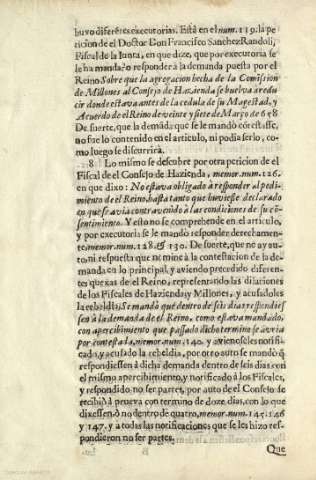 huvo diferētes executorias. Està en el num. 119. la pe
ticion de el Doctor Don Francisco Sanchez Randoli,
Fiscal de la Iunta, en que dize, que por executoria se
le ha mandaḍo responder à la demanda puesta por el
Reino Sobre que la agregacion hecha de la Comission
de Millones al Consejo de Hazienda se buelva a redu
cir donde estava antes de la cedula de su Magestad, y
Acuerdo de el Reino de veinte y siete de Março de 658
De suerte, que la demāda que se le mandò cōtestasse,
no fue lo contenido en el articulo, ni podia serlo, co
mo luego se discurrirà.
8 Lo mismo se descubre por otra peticion de el
Fiscal de el Consejo de Hazienda, memor. num. 126.
en que dixo: No estava obligado à responder al pedi-
miento de el Reino, hasta tanto que huviesse declarado
en que se avia contravenido à las condiciones de su cō
sentimiento. Y esto no se comprehende en el articulo,
y por executoria se le mandò responder derechamen-
te, memor. num. 128. & 130. De suerte, que no ay au-
to, ni respuesta que termine à la contestacion de la de-
manda en lo principal, y aviendo precedido diferen-
tes quexas de el Reino, representando las dilaciones
de los Fiscales de Hazienda, y Millones, y acusadoles
la rebeldia, Se mandò que dentro de seis dias respondies
sen à la demanda de el Reino, como estava mandado,
con apercibimiento que passado dicho termino se avria
por contestada, memor. num. 140. y aviēdoseles notifi-
cado, y acusado la rebeldia, por otro auto se mandò q̄
respondiessen à dicha demanda dentro de seis dias con
el mismo apercibimiento, y notificado à los Fiscales,
y respondido no ser partes, por auto de el Consejo se
recibiò à prueva con termino de doze dias, con lo que
dixessen ò no dentro de quatro, memor. num. 145. 146
y 147. y a todas las notificaciones que se les hizo res-
pondieron no ser partes.
Que